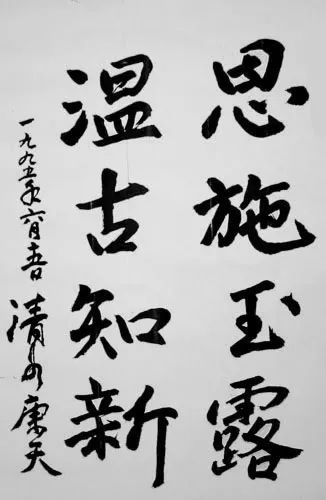 恩施玉露
温古知新
一九九五年六月
清水康夫